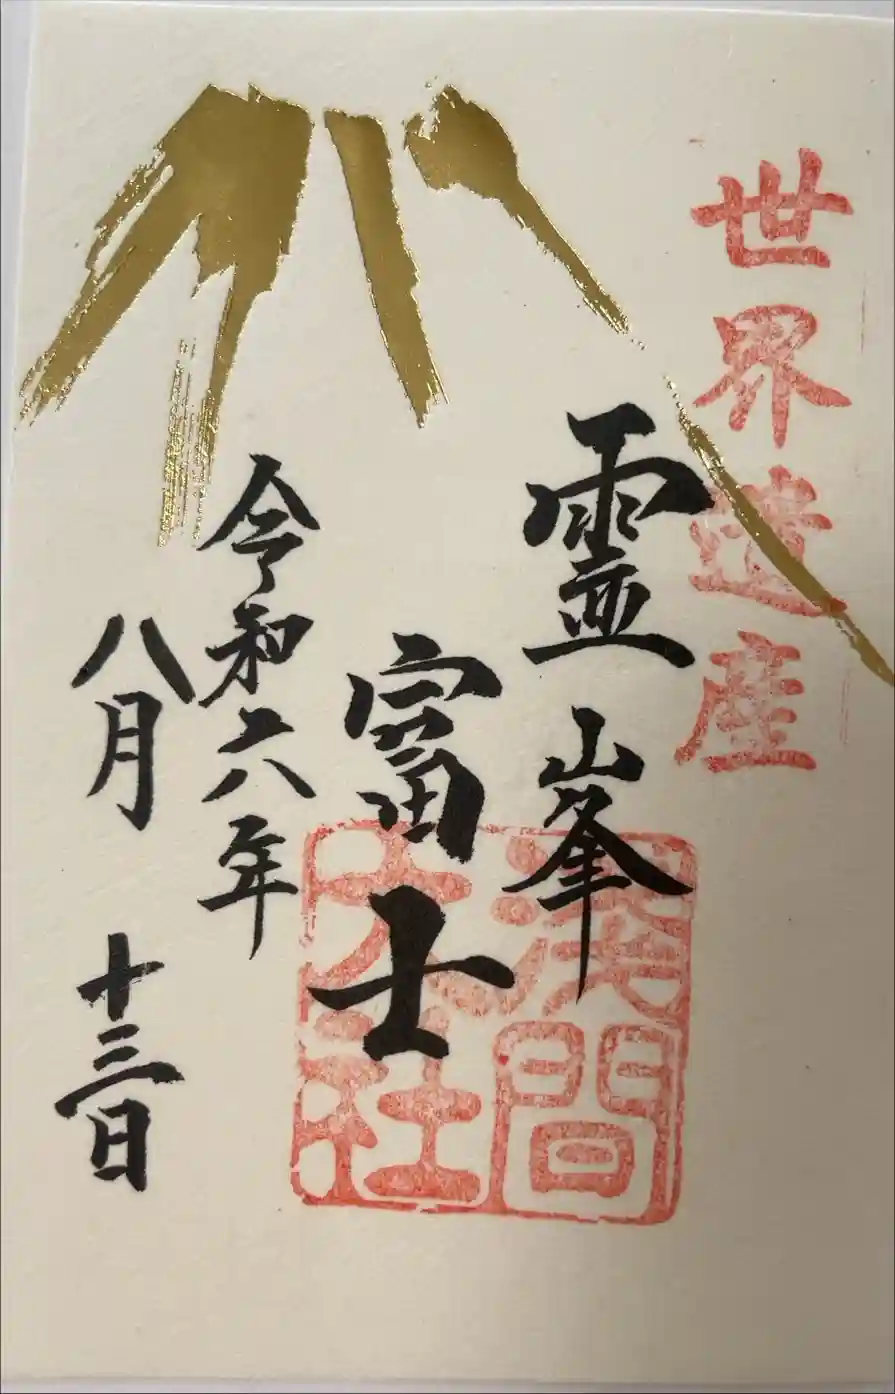 世界遺産
霊峯
富士
令和六年
八月十三日
浅間
大社